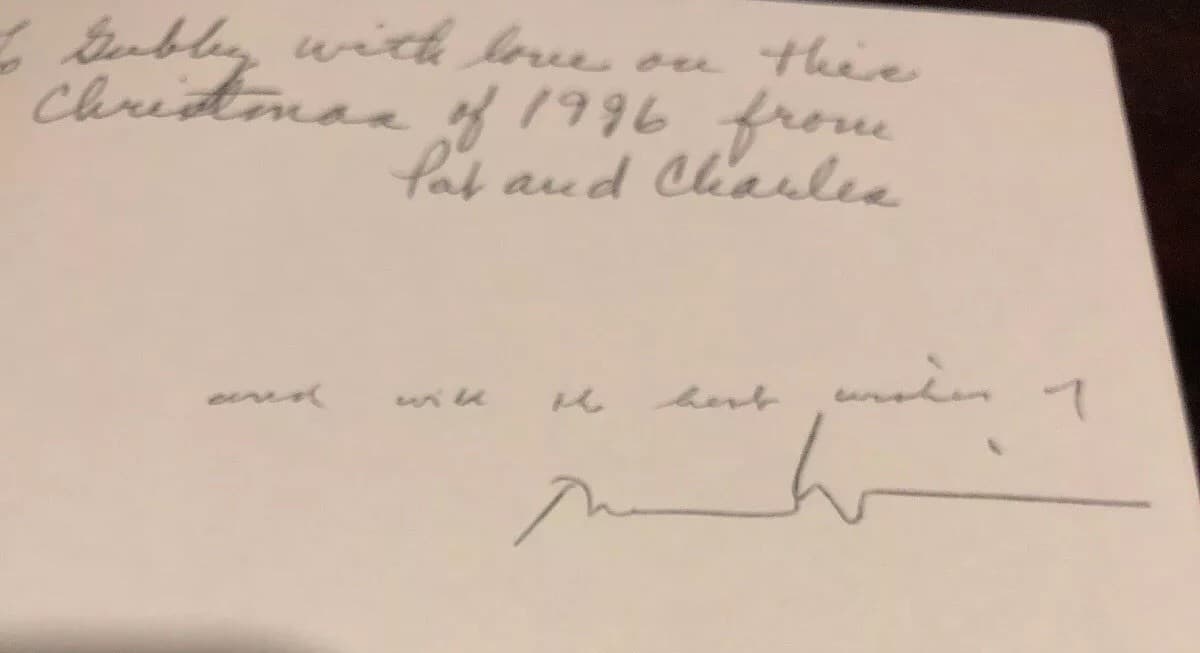 with love on this
Christmas of 1996 from
Pat and Charles
and with the best wishes of